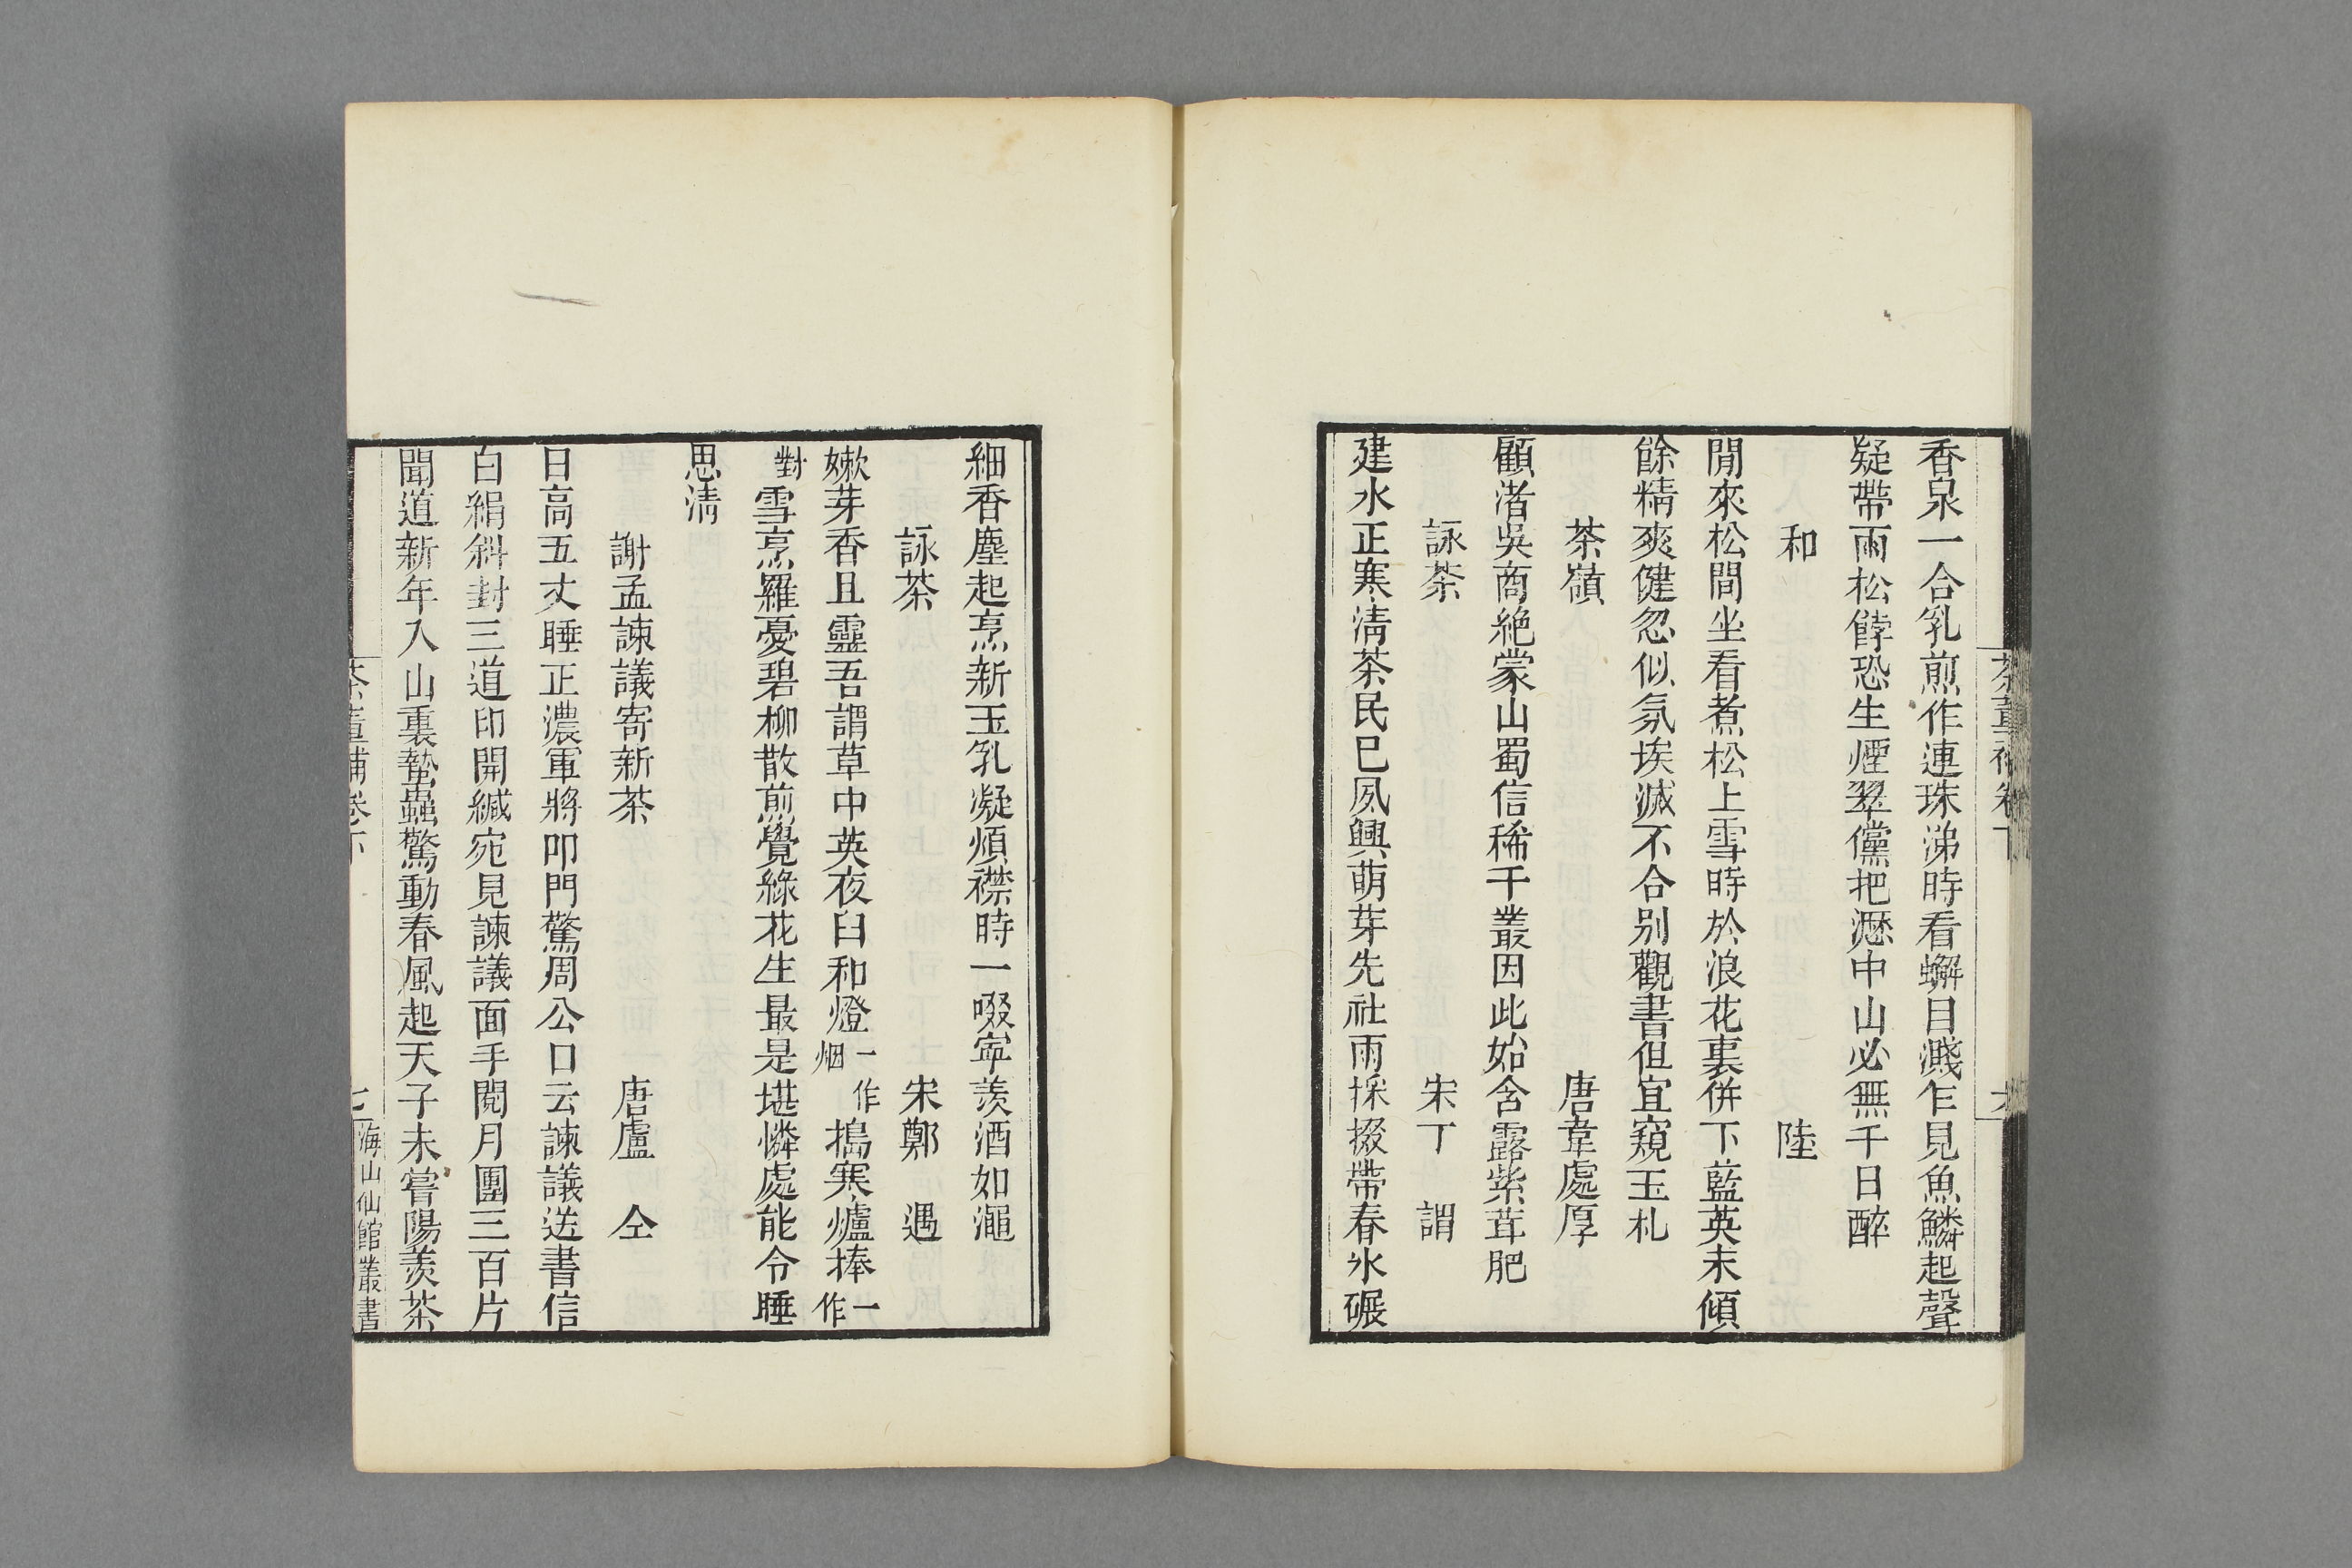 香泉一合乳煎作連珠涕時看蠏目濺乍見魚鱗起聲
疑帶雨松餑恐生煙翠儻把瀝中山必無千日醉
和 陸
閒來松間坐看煮松上雪時於浪花裏併下藍英末傾
餘精爽健忽似氛埃滅不合别觀書但宜窺玉札
茶嶺 唐韋處厚
顧渚吳商絶蒙山蜀信稀千叢因此始含露紫茸肥
詠茶 宋丁 謂
建水正寒清茶民已夙興萌芽先社雨採掇帶春氷碾
細香塵起烹新玉乳凝煩襟時一啜寜羨酒如澠
詠茶 宋鄭 遇
嫰芽香且靈吾謂草中英夜臼和燈一作烟搗寒爐捧一作
對雪烹羅憂碧柳散煎覺綠花生最是堪憐處能令睡
思清
謝孟諫議寄新茶 唐盧 仝
日高五丈睡正濃軍將叩門驚周公口云諫議送書信
白絹斜封三道印開緘宛見諫議面手閱月團三百片
聞道新年入山裏蟄蟲驚動春風起天子未嘗陽羨茶
茶董補卷下
七
海山仙館叢書